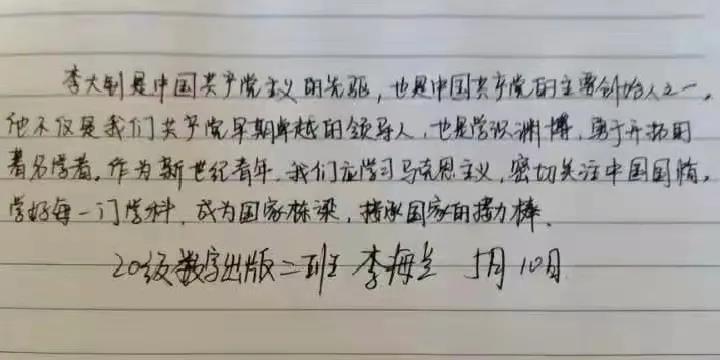 李大钊是中国共产党主义的先驱，也是中国共产党的主要创始人之一。
他不仅是我们共产党早期卓越的领导人，也是学识渊博、勇于开拓的
著名学者。作为新世纪青年，我们应学习马克思主义，密切关注中国国情，
学好每一门学科，成为国家栋梁，接承国家的接力棒。
20级数字出版二班 李海兰 5月10日